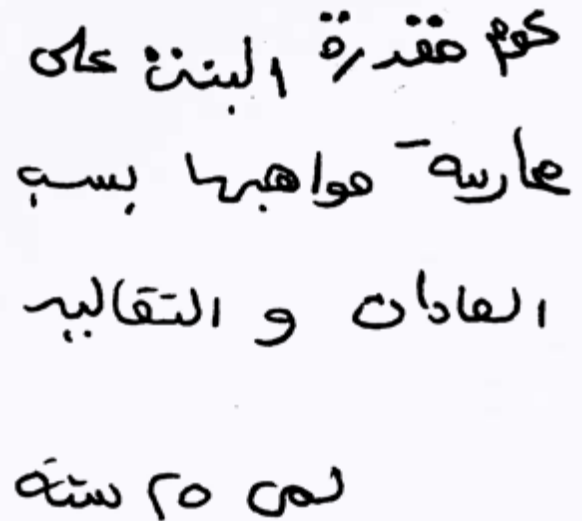 كوم مقدرة البنت على
ممارسة مواهبها بسبب
العادات و التقاليد
لمى ٢٥ سنة